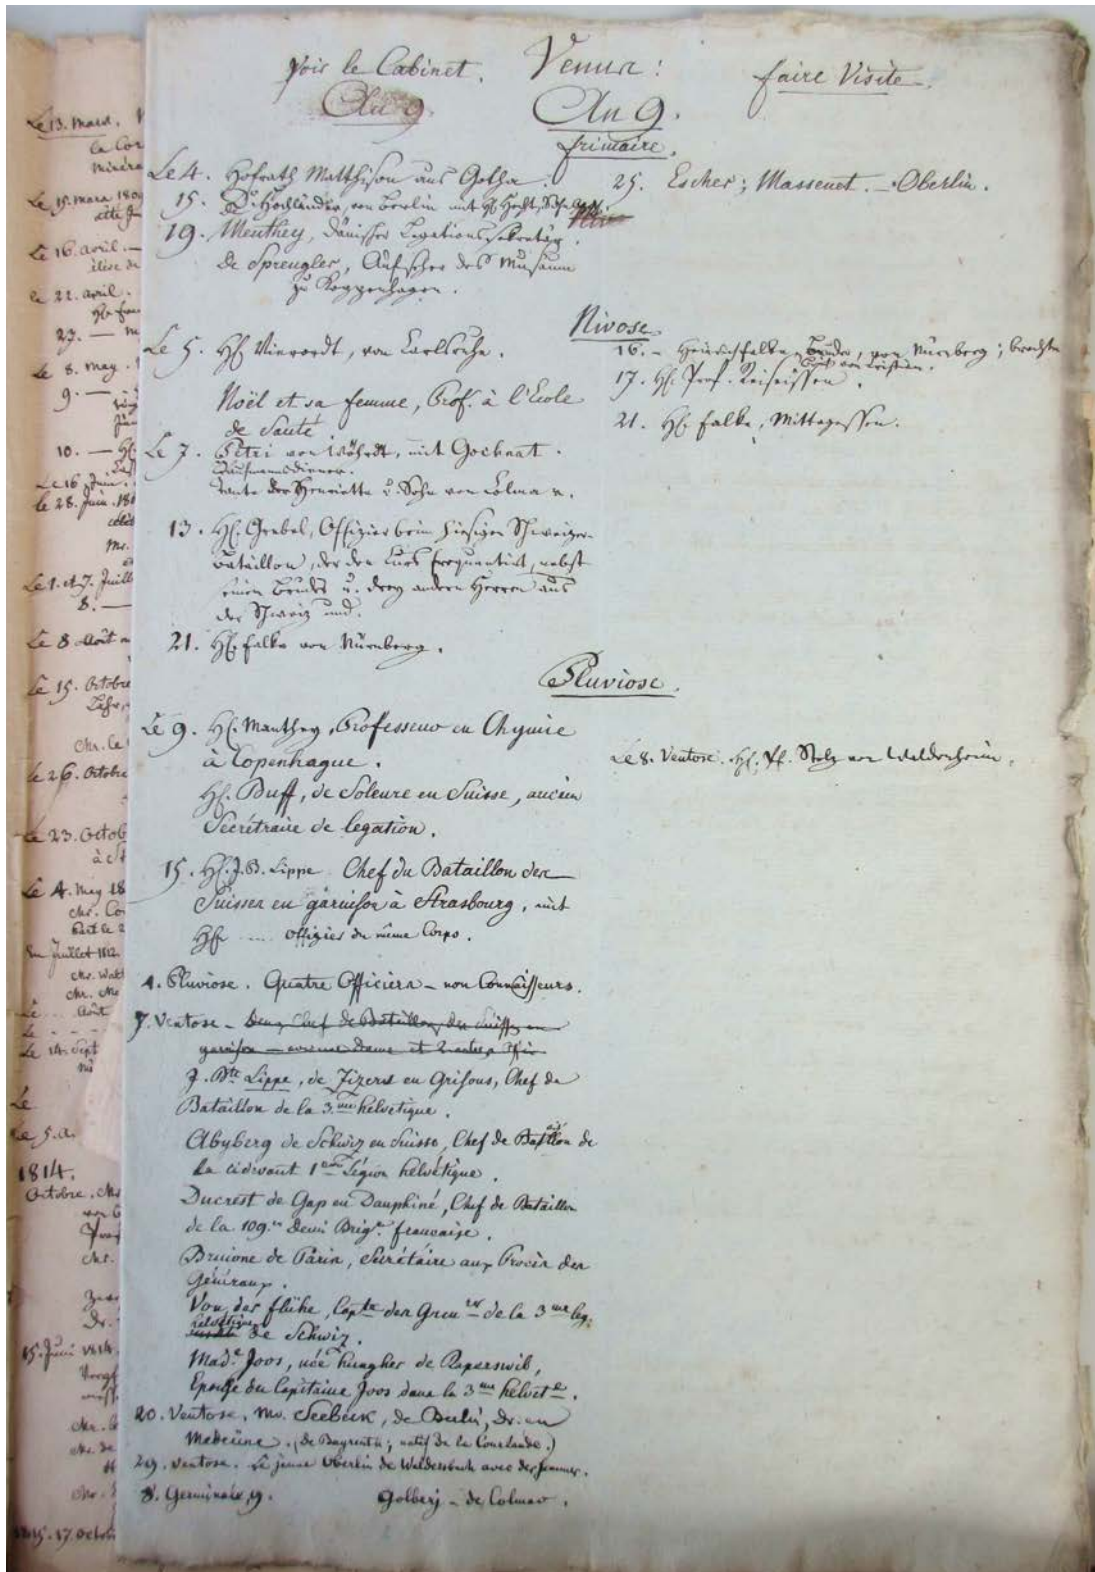 Voir le Cabinet. Venus: faire Visite.
An 9. An 9.
frimaire.
Le 4. Hofrath Matthison aus Gotha.
25. Escher; Massenet. — Oberlin.
15. Dr. Hochländer, von Berlin mit H. Hecht, Sohn
19. Menthey, Dänischer Legationssekretär.
De Sprengler, Aufseher des Museum
zu Koppenhagen.
Nivose.
Le 5. H. Vierordt, von Carlsruhe.
16. - Heinrich Falke, Bruder, von Nürnberg; brachte
Brief von Cristian.
17. H. Prof. Reiseissen.
Noël et sa femme, Prof. à l'Ecole
de Santé
21. H. Falke, Mittagessen.
Le 7. Petri von Wöhrdt, mit Gochnat.
Tante der Henriette u. Sohn von Colmar.
13. H. Grebel, Offizier beim hiesigen Schweizer-
bataillon, der den Curs frequentirt, nebst
einem Bruder u. drey andern Herren aus
der Schweiz und.
21. H. Falke von Nürnberg.
Pluviose.
Le 9. H. Manthey, Professeur en Chymie
à Copenhague.
Le 8. Ventose. H. Pf. Stolz von Waldersheim.
H. Buff, de Soleure en Suisse, ancien
Secrétraire de legation.
15. H. J. B. Lippe Chef du Bataillon des
Suisses en garnison à Strasbourg, mit
H. .... Offizier du même Corps.
4. Pluviose. Quatre Officiers - non Connaisseurs.
7. Ventose - Deux Chef de Bataillon des Suisses en
garnison — avec une Dame et
J. Bte Lippe, de Zizers en Grisons, Chef de
Bataillon de la 3.me helvetique.
Abyberg de Schwiz en Suisse, Chef de Bataillon de
la cidevant 1ere Légion helvétique.
Ducrest de Gap en Dauphiné, Chef de Bataillon
de la 109.e Demi Brige. française.
Bruione de Paris, Secrétaire aux Procès des
Généraux.
Von der Flühe, Capte des Gren.rs de la 3me leg:
helvétique de Schwiz.
Made. Joos, née hungher de Raperswil,
Epouse du Capitaine Joos dans la 3me helvete.
20. Ventose. Mr. Seebeck, de Berlin, Dr. en
Medecine. (de Bayreuth; natif de la Courlande.)
29. Ventose. Le jeune Oberlin de Waldersbach avec des femmes.
8. Germinale 9. Golberj - de Colmar.
Le 13. Mars.
Le 15. Mars
Le 16. avril. —
le 22. avril.
27. —
Le 8. May.
9. —
10. —
Le 16 Juin.
le 28. Juin.
Le 1. et 7. Juill
8. —
Le 8 Août
Le 15. Octobre
Mr. le
Le 26. Octobre
Le 23. Octob
Le 4. May 18
Mr. Co
Juillet 1812
Mr.
Août
Le 14. Sept
Le
Le 5. a.
1814.
Octobre. Mr
15. Juin 1814
Mr. de
1815. 17. Octob